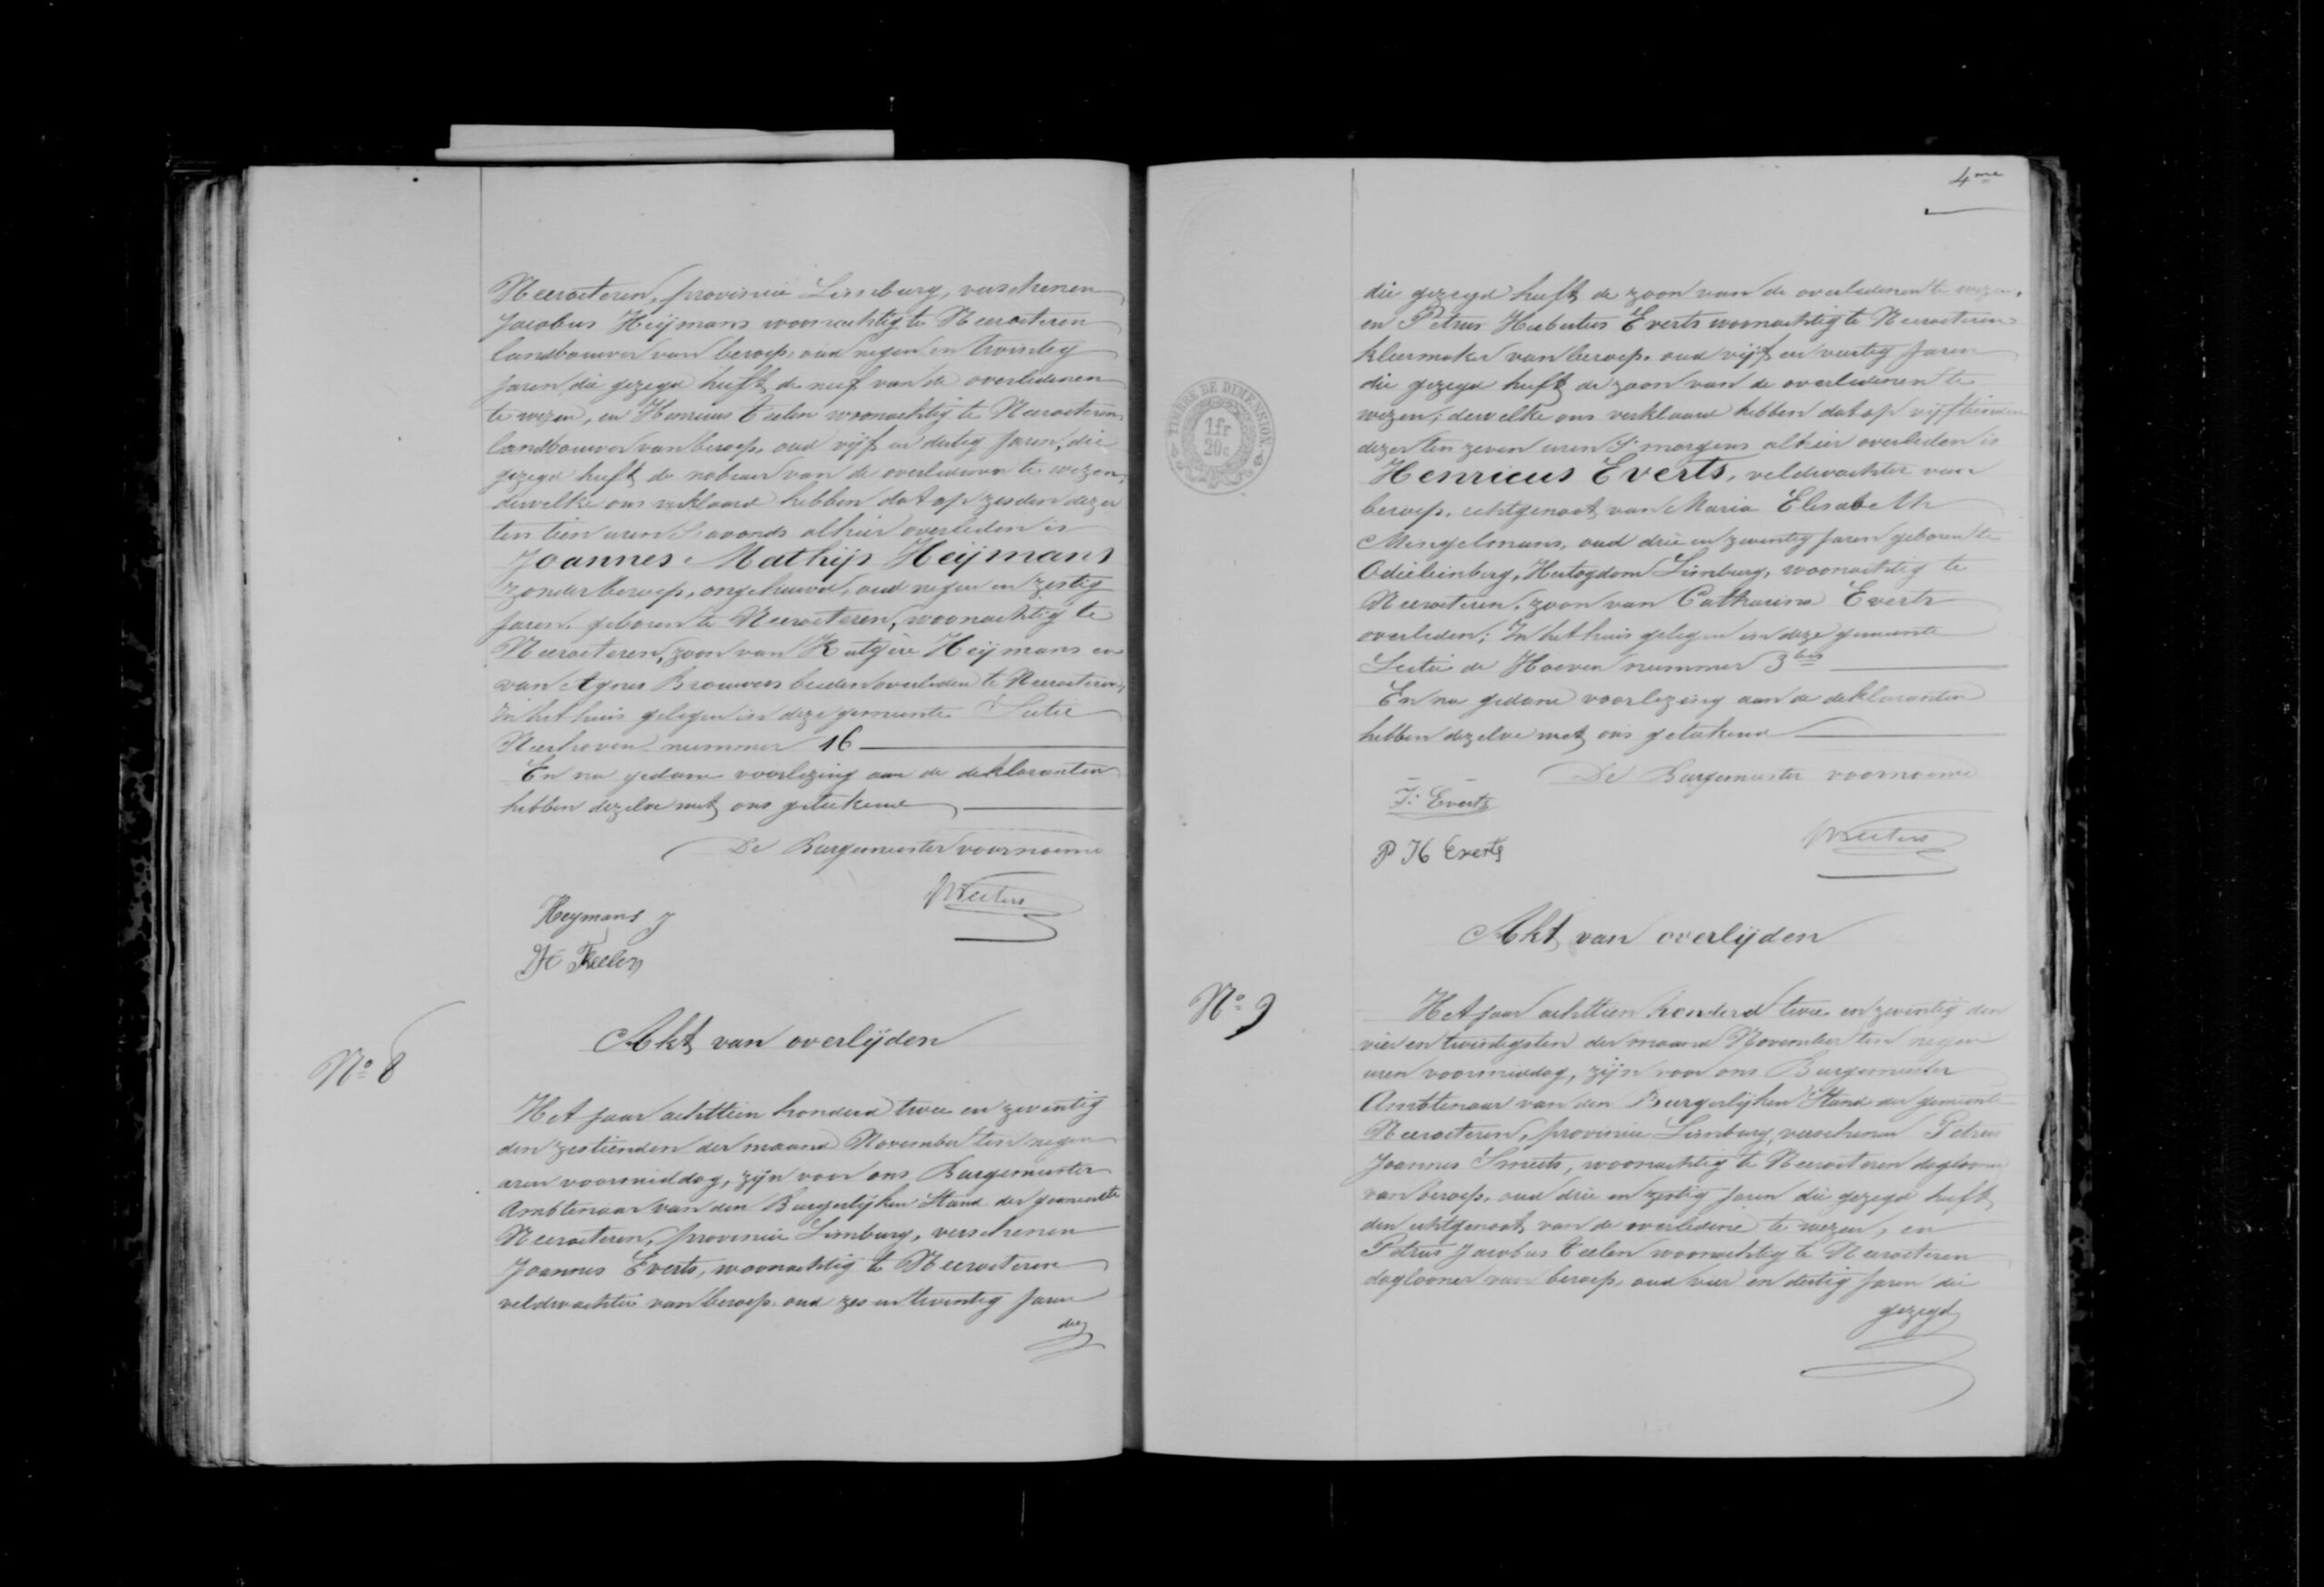 Neeroeteren, provincie Limburg, verschenen
Jacobus Heijmans woonachtig te Neeroeteren
landbouwer van beroep, oud negen en twintig
jaren die gezegd heeft de neef van de overledenen
te wezen, en Henricus Teelen woonachtig te Neeroeteren
landbouwer van beroep, oud vijf en dertig jaren, die
gezegd heeft de nabuur van de overledenen te wezen,
dewelke ons verklaard hebben dat op zesden dezer
ten tien uren 's avonds alhier overleden is
Joannes Mathijs Heijmans
zonder beroep, ongehuwd, oud negen en zestig
jaren, geboren te Neeroeteren, woonachtig te
Neeroeteren, zoon van Rutgere Heijmans en
van Agnes Brouwers beiden overleden te Neeroeteren,
In het huis gelegen in deze gemeente Sectie
Neerhoven nummer 16
En na gedane voorlezing aan de deklaranten
hebben dezelve met ons geteekend
De Burgemeester voornoemd
Heymans J
H Teelen
No 8
Akt van overlijden
Het jaar achttien honderd twee en zeventig
den zestienden der maand November ten negen
uren voormiddag, zijn voor ons Burgemeester
Ambtenaar van den Burgerlijken Stand der gemeente
Neeroeteren, provincie Limburg, verschenen
Joannes Everts, woonachtig te Neeroeteren
veldwachter van beroep, oud zes en twintig jaren
die
4me
TIMBRE DE DIMENSION
1fr
20c
die gezegd heeft de zoon van de overledenen te wezen,
en Petrus Hubertus Everts woonachtig te Neeroeteren
kleermaker van beroep, oud vijf en veertig jaren
die gezegd heeft de zoon van de overledenen te
wezen; dewelke ons verklaard hebben dat op vijftienden
dezer ten zeven uren 's morgens alhier overleden is
Henricus Everts, veldwachter van
beroep, echtgenoot van Maria Elisabeth
Mingelmans, oud drie en zeventig jaren geboren te
Odiliënberg, Hertogdom Limburg, woonachtig te
Neeroeteren, zoon van Catharina Everts
overleden; In het huis gelegen in deze gemeente
Sectie de Hoeven nummer 3bis
En na gedane voorlezing aan de deklaranten
hebben dezelve met ons geteekend
De Burgemeester voornoemd
J. Everts
P H Everts
Akt van overlijden
No 9
Het jaar achttien honderd twee en zeventig den
vier en twintigsten der maand November ten negen
uren voormiddag, zijn voor ons Burgemeester
Ambtenaar van den Burgerlijken Stand der gemeente
Neeroeteren, provincie Limburg, verschenen Petrus
Joannes Smeets, woonachtig te Neeroeteren dagloner
van beroep, oud drie en zestig jaren die gezegd heeft
den echtgenoot van de overledene te wezen, en
Petrus Jacobus Teelen woonachtig te Neeroeteren
dagloner van beroep, oud vier en dertig jaren die
gezegd